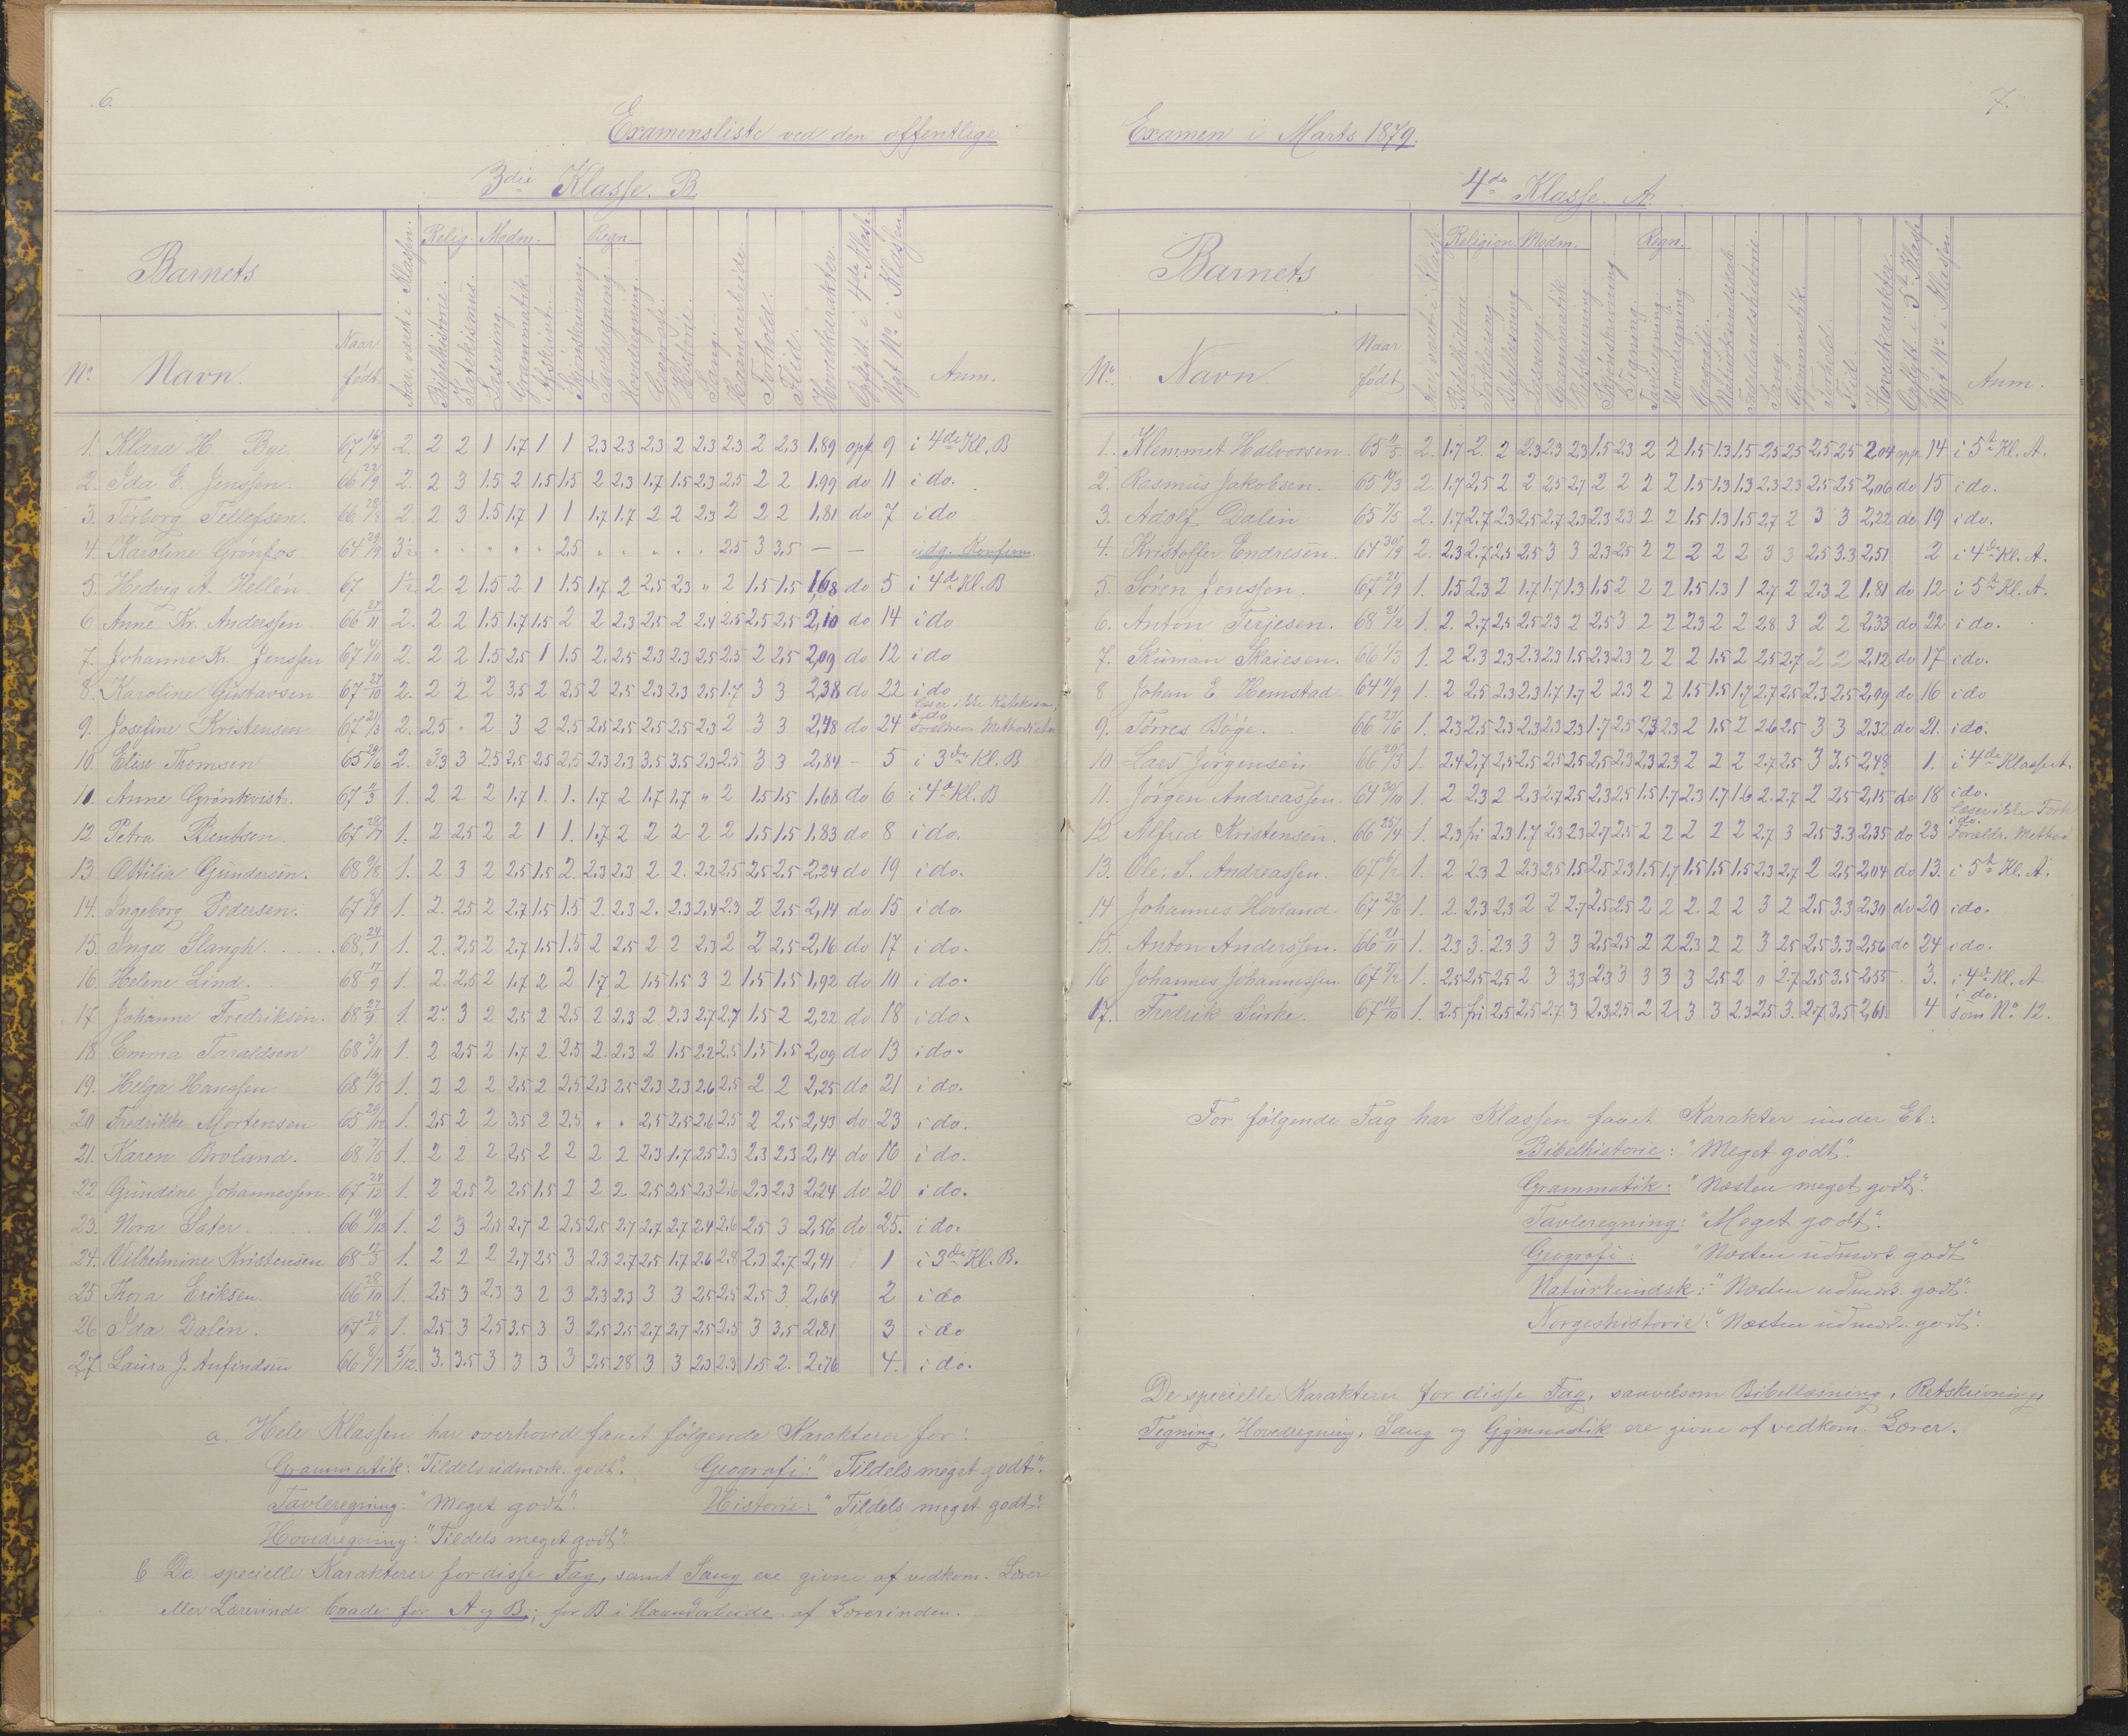 6.
Examensliste ved den offentlige
3die Klasse. B.
Barnets
Aar været i Klassen.
Relig.
Modm.
Regn.
Bibelhistorie.
Katekismus.
Læsning
Grammatik.
Afskrivt.
Skjönskrivning.
Tavleregning
Hovedregning.
Geografi.
Historie.
Sang.
Haandarbeide.
Forhold.
Flid.
Hovedkarakter.
Opflt i 4de Klas.
Nyt No. i Klassen
Anm.
No. Navn. Naar født.
1. Klara H. Bye. 67 2. 2 2 1 1.7 1 1 2.3 2.3 2.3 2 2.3 2.3 2 2.3 1.89 opfl 9 i 4de Kl. B
2. Ida E. Jenssen. 66 23/9 2. 2 3 1.5 2 1.5 1.5 2 2.3 1.7 1.5 2.3 2.5 2 2 1.99 do 11 i do.
3. Torborg Tellefsen. 66 28/8 2 2 3 1.5 1.7 1 1 1.7 1.7 2 2 2.3 2 2 2 1.81 do 7 i do
4. Karoline Grönfos 64 29/9 3½ " " " " " 2.5 " " " " " 2.5 3 3.5 — — udg. Konfirm.
5. Hedvig A. Hellén 67 1½ 2 2 1.5 2 1 1.5 1.7 2 2.5 2.3 " 2 1.5 1.5 1,68 do 5 i 4de Kl. B
6 Anne Kr. Anderssen 66 27/11 2. 2 2 1.5 1.7 1.5 2 2 2.3 2.5 2 2.4 2.5 2.5 2.5 2,10 do 14 i do
7. Johanne Kr. Jenssen 67 4/10 2. 2 2 1.5 2.5 1 1.5 2. 2.5 2.3 2.3 2.5 2.5 2 2.5 2,09 do 12 i do
8. Karoline Gustavsen 67 27/10 2. 2 2 2 3.5 2 2.5 2 2.5 2.3 2.3 2.5 1.7 3 3 2,38 do 22 i do
læser ikke Katekism.
9. Josefine Kristensen 67 21/3 2. 2.5 " 2 3 2 2.5 2.5 2.5 2.5 2.5 2.3 2 3 3 2,48 do 24 i do Forældrene Methodister
10. Elise Thomsen 65 29/6 2. 3.3 3 2.5 2.5 2.5 2.5 2.3 2.3 3.5 3.5 2.3 2.5 3 3 2,84 – 5 i 3die Kl. B
11. Anne Grönkvist. 67 1. 2 2 2 1.7 1. 1. 1.7 2 1.7 1.7 " 2 1.5 1.5 1.68 do 6 i 4de Kl. B
12 Petra Berntsen. 67 1. 2 2.5 2 2 1 1. 1.7 2 2 2 2 2 1.5 1.5 1.83 do 8 i do.
13 Ottilia Gundersen. 68 9/8 1. 2 3 2 2.5 1.5 2 2.3 2.3 2 2. 2.2 2.5 2.5 2.5 2.24 do 19 i do.
14. Ingeborg Pedersen. 67 1. 2. 2.5 2 2.7 1.5 1.5 2. 2.3 2. 2.3 2,4 2.3 2 2.5 2,14 do 15 i do.
15. Inga Slangh. 68 24/1 1. 2. 2.5 2 2.7 1.5 1.5 2 2.5 2 2 2.3 2 2 2.5 2,16 do 17 i do.
16. Helene Lind. 68 17/9 1. 2. 2.5 2 1.7 2 2 1.7 2 1.5 1.5 3 2 1.5 1.5 1,92 do 10 i do.
17 Johanne Fredriksen. 68 27/9 1. 2. 3 2 2.5 2 2.5 2 2.3 2 2.3 2.7 2.7 1.5 2 2,22 do 18 i do.
18 Emma Taraldsen 68 3/11 1. 2 2.5 2 1.7 2 2.5 2. 2.3 2 1.5 2.2 2.5 1.5 1.5 2,09 do 13 i do.
19. Helga Hanssen 68 15/5 1. 2 2 2 2.5 2 2.5 2.3 2.5 2.3 2.3 2.6 2.5 2 2 2,25 do 21 i do.
20 Fredrikke Mortensen 65 29/12 1. 2.5 2 2 3.5 2 2.5 " " 2.5 2.5 2.6 2.5 2 2.5 2,43 do 23 i do.
21. Karen Broland. 68 7/5 1. 2 2 2 2.5 2 2 2 2 2.3 1.7 2.5 2.3 2.3 2.3 2,14 do 16 i do.
22 Gundine Johannessen. 67 24/12 1. 2 2.5 2 2.5 1.5 2 2 2 2.5 2.5 2.3 2.6 2.3 2.3 2,24 do 20 i do.
23. Nora Sæter. 66 19/12 1. 2 3 2.5 2.7 2 2.5 2.5 2.7 2.7 2.7 2.4 2.6 2.5 3 2,56 do 25. i do.
24. Vilhelmine Kristensen 68 1. 2 2 2 2.7 2.5 3 2.3 2.7 2.5 1.7 2.6 2.8 2.3 2.7 2,41 1 i 3die Kl. B.
25 Thora Eriksen 66 28/10 1. 2.5 3 2.3 3 2 3 2.3 2.3 3 3 2.5 2.5 2.5 3 2,64 2 i do
26 Ida Dalén. 67 24/11 1. 2.5 3 2.5 3.5 3 3 2.5 2.5 2.7 2.7 2.5 2.5 3 3.5 2,81 3 i do
27 Laura J. Anfindsen 66 8/7 5/12. 3. 3.5 3 3 3 3 2.5 2.8 3 3 2.3 2.3 1.5 2. 2.76 4. i do.
a. Hele Klassen har overhoved faaet følgende Karakterer for:
Grammatik: "Tildels udmærk. godt". Geografi: "Tildels meget godt".
Tavleregning: "Meget godt". Historie: "Tildels meget godt".
Hovedregning: "Tildels meget godt".
b De specielle Karakterer for disse Fag, samt Sang ere givne af vedkom. Lærer
eller Lærerinde baade for A og B; for B i Haandarbeide af Lærerinden.
7.
Examen i Marts 1879.
4de Klasse. A.
Barnets
Aar været i Klasse
Religion
Modm.
Regn.
Bibelhistorie
Forklaring.
Bibellæsning
Læsning.
Grammatik
Retskrivning
Skjönskrivning
Tegning.
Tavleregning.
Hovedregning.
Geografi.
Naturkundskab
Fædrelandshistorie.
Sang.
Gymnastik.
Forhold.
Flid.
Hovedkarakter.
Opflytt i 5te Klasse
Nyt No. i Klassen
Anm.
No. Navn. Naar født
1. Klemmet Halvorsen 65 11/5 2. 1.7 2. 2 2.3 2.3 2.3 1.5 2.3 2 2 1.5 1.3 1.5 2.5 2.5 2.5 2.5 2,04 opfl 14 i 5te Kl. A.
2. Rasmus Jakobsen. 65 10/3 2 1.7 2.5 2 2 2.5 2.7 2 2 2 2 1.5 1.3 1.3 2.3 2.3 2.5 2.5 2,06 do 15 i do.
3. Adolf Dalin 65 2. 1.7 2.7 2.3 2.5 2.7 2.3 2.3 2.3 2 2 1.5 1.3 1.5 2.7 2 3 3 2,22 do 19 i do.
4. Kristoffer Endresen. 64 30/9 2. 2.3 2.7 2.5 2.5 3 3 2.3 2.5 2 2 2 2 2 3 3 2.5 3.3 2,51 2 i 4de Kl. A.
5. Søren Jenssen. 67 21/9 1. 1.5 2.3 2 1.7 1.7 1.3 1.5 2 2 2 1.5 1.3 1 2.7 2 2.3 2 1.81 do 12 i 5te Kl. A.
6. Anton Terjesen. 68 21/2 1. 2. 2.7 2.5 2.5 2.3 2 2.5 3 2 2 2.3 2 2 2.8 3 2 2 2,33 do 22 i do.
7. Skuman Skaiesen. 66 1/3 1. 2 2.3 2.3 2.3 2.3 1.5 2.3 2.3 2 2 2 1.5 2 2.5 2.7 2 2 2,12 do 17 i do.
8 Johan E Hemstad 64 11/9 1. 2 2.5 2.3 2.3 1.7 1.7 2 2.3 2 2 1.5 1.5 1.7 2.7 2.5 2.3 2.5 2,09 do 16 i do
9. Tørres Bøge. 66 27/6 1. 2.3 2.5 2.3 2.3 2.3 2.3 1.7 2.5 2.3 2.3 2 1.5 2 2.6 2.5 3 3 2.32 do 21. i do.
10 Lars Jörgensen 66 20/3 1. 2.4 2.7 2.5 2.5 2.5 2.5 2.5 2.3 2.3 2.3 2 2 2 2.7 2.5 3 3.5 2,48 1. i 4de Klasse A.
11. Jörgen Andreassen. 64 30/10 1. 2 2.3 2 2.3 2.7 2.5 2.3 2.5 1.5 1.7 2.3 1.7 1.6 2. 2.7 2 2.5 2,15 do 18 i do.
læser ikke Fork.
12 Alfred Kristensen. 66 25/4 1. 2.3 fri 2.3 1.7 2.3 2.3 2.7 2.5 2 2 2 2 2 2.7 3 2.5 3.3 2.35 do 23 i do. Forældr. Method
13. Ole. S. Andreassen. 67 6/12 1. 2 2.3 2 2.3 2.5 1.5 2.5 2.3 1.5 1.7 1.5 1.5 1.5 2.3 2.7 2 2.5 2,04 do 13. i 5te Kl. A.
14 Johannes Hovland. 67 23/6 1. 2. 2.3 2.3 2 2 2.7 2.5 2.5 2 2 2 2 2 3 2 2.5 3.3 2.30 do 20 i do.
15. Anton Anderssen. 66 21/11 1. 2.3 3. 2.3 3 3 3 2.5 2.5 2 2 2.3 2 2 3 2.5 2.5 3.3 2,56 do 24 i do.
16 Johannes Johannessen 67 1. 2.5 2.5 2.5 2 3 3.3 2.3 3 3 3 3 2.5 2 " 2.7 2.5 3.5 2.55 3. i 4de Kl. A
17. Fredrik Surke. 67 19/10 1. 2.5 fri 2.5 2.5 2.7 3 2.3 2.5 2 2 3 3 2.3 2.5 3. 2.7 3.5 2,61 4 i do. som No. 12.
For følgende Fag har Klassen faaet Karakter under Et:
Bibelhistorie: "Meget godt".
Grammatik: "Næsten meget godt".
Tavleregning: "Meget godt".
Geografi: "Næsten udmærk. godt"
Naturkundsk: "Næsten udmærk. godt".
Norgeshistorie: "Næsten udmærk. godt".
De specielle Karakterer for disse Fag, saavelsom Bibellæsning, Retskrivning
Tegning, Hovedregning, Sang og Gymnastik ere givne af vedkom. Lærer.